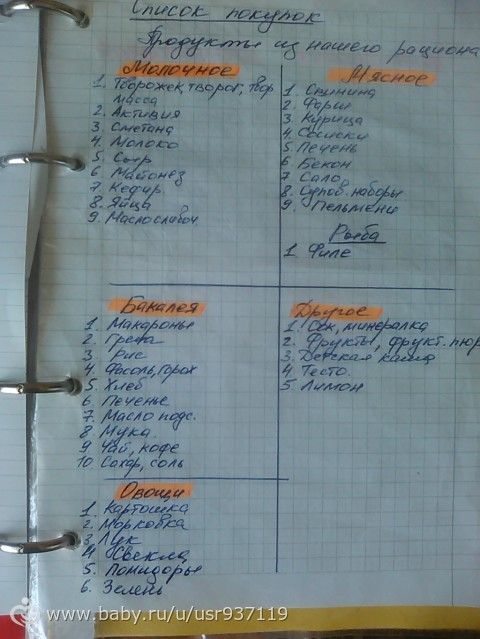 Список покупок
Продукты из нашего рациона
Молочное
1. Творожек, творог, твор
масса
2. Активия
3. Сметана
4. Молоко
5. Сыр
6. Майонез
7. Кефир
8. Яйца
9. Масло сливоч.
Мясное
1. Свинина
2. Фарш
3. Курица
4. Сосиски
5. Печень
6. Бекон
7. Сало
8. Супов. наборы
9. Пельмени
Рыба
1. Филе
Бакалея
1. Макароны
2. Греча
3. Рис
4. Фасоль, горох
5. Хлеб
6. Печенье
7. Масло подс.
8. Мука
9. Чай, кофе
10. Сахар, соль
Другое
1. Сок, минералка
2. Фрукты, фрукт. пюр
3. Детская каша
4. Тесто
5. Лимон
Овощи
1. Картошка
2. Морковка
3. Лук
4. Свекла
5. Помидоры
6. Зелень
www.baby.ru/u/usr937119